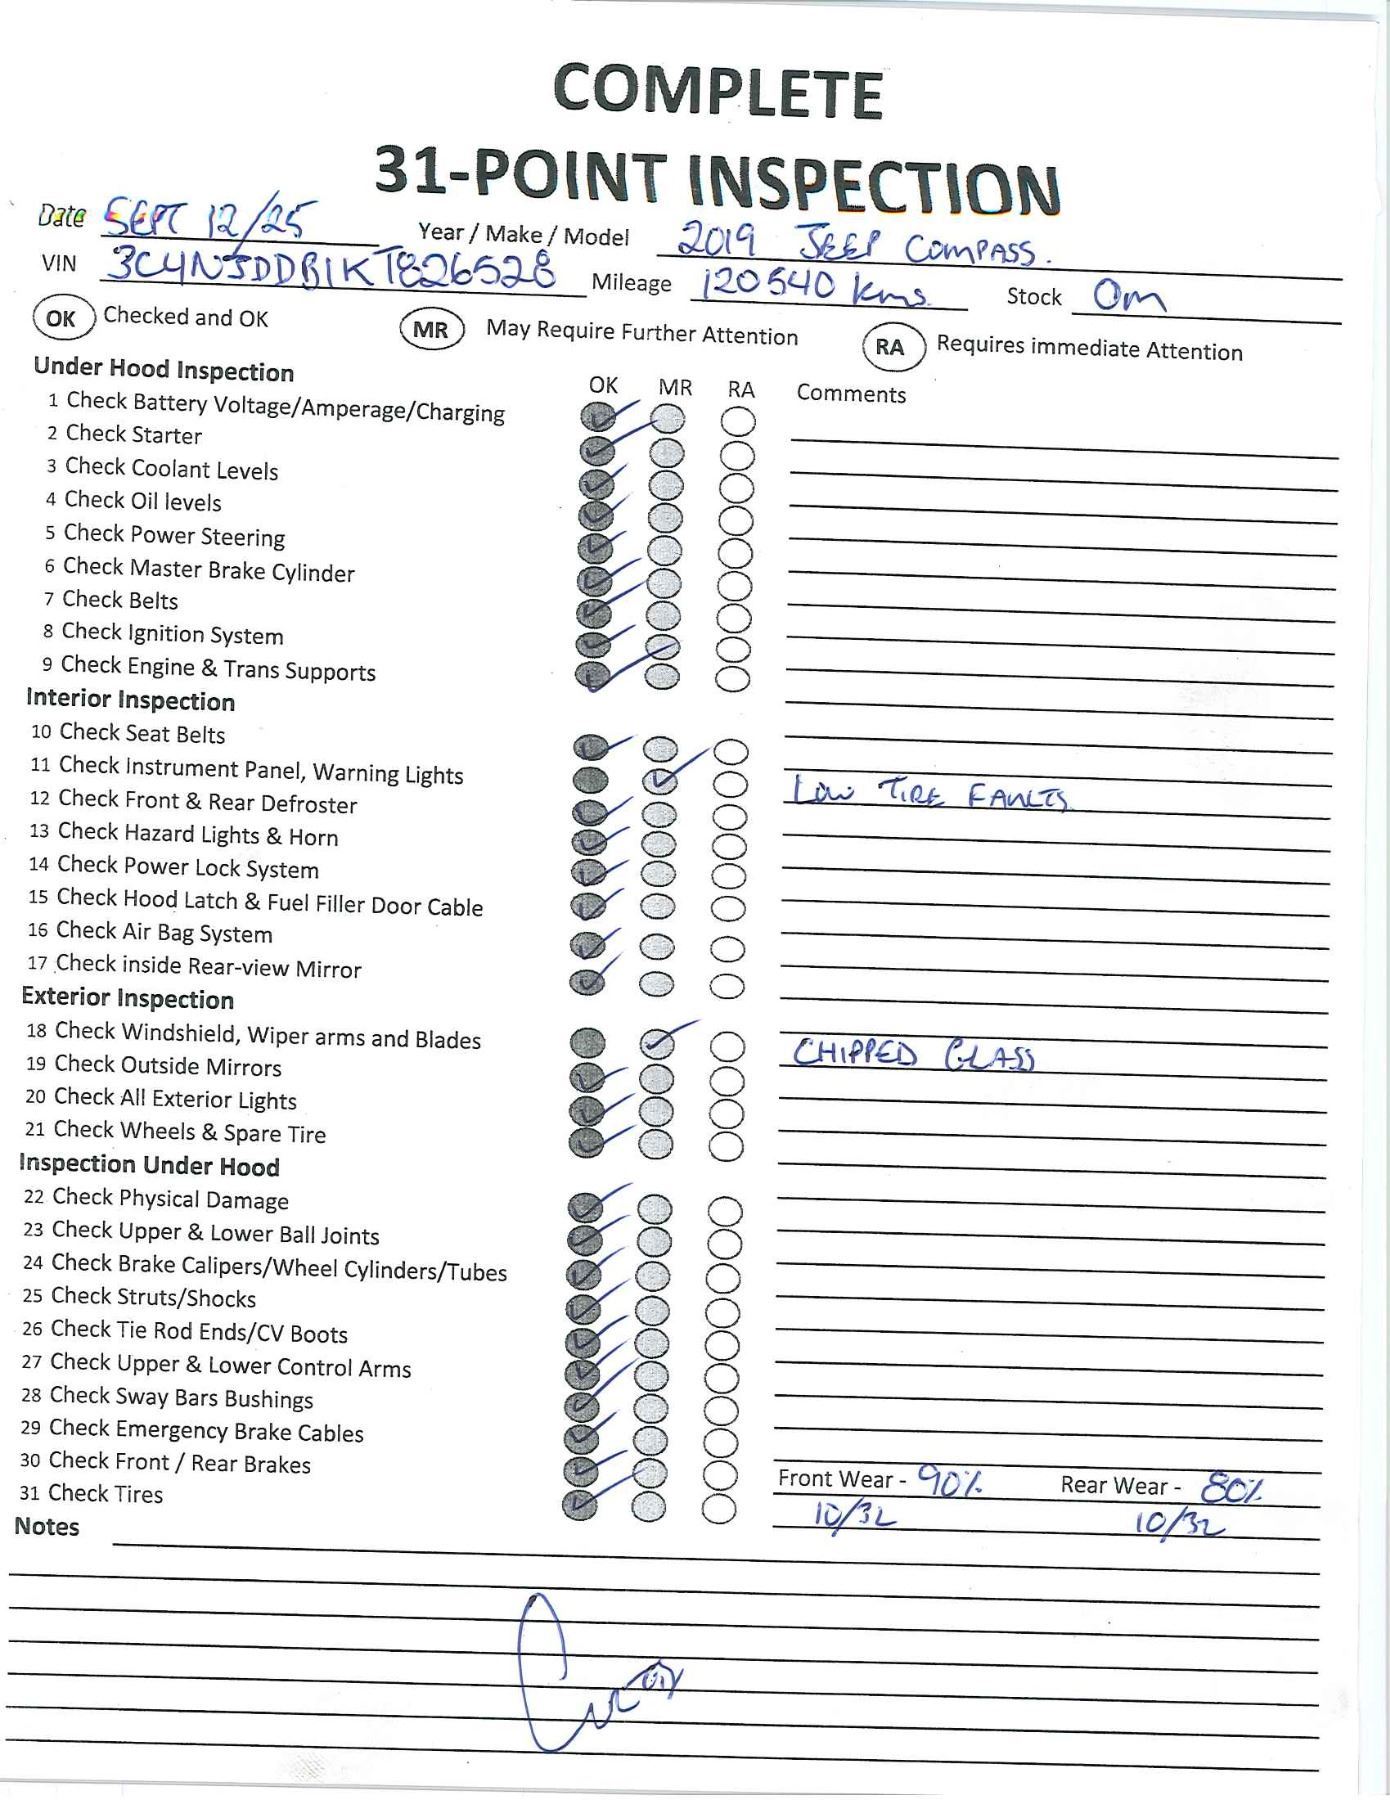 COMPLETE
31-POINT INSPECTION
Date SEPT 12/25 Year / Make / Model 2019 JEEP COMPASS.
VIN 3C4NJDDB1KT826528 Mileage 120540 kms. Stock Om
OK Checked and OK MR May Require Further Attention RA Requires immediate Attention
Under Hood Inspection OK MR RA Comments
1 Check Battery Voltage/Amperage/Charging
2 Check Starter
3 Check Coolant Levels
4 Check Oil levels
5 Check Power Steering
6 Check Master Brake Cylinder
7 Check Belts
8 Check Ignition System
9 Check Engine & Trans Supports
Interior Inspection
10 Check Seat Belts
11 Check Instrument Panel, Warning Lights LOW TIRE FAULTS
12 Check Front & Rear Defroster
13 Check Hazard Lights & Horn
14 Check Power Lock System
15 Check Hood Latch & Fuel Filler Door Cable
16 Check Air Bag System
17 Check inside Rear-view Mirror
Exterior Inspection
18 Check Windshield, Wiper arms and Blades CHIPPED GLASS
19 Check Outside Mirrors
20 Check All Exterior Lights
21 Check Wheels & Spare Tire
Inspection Under Hood
22 Check Physical Damage
23 Check Upper & Lower Ball Joints
24 Check Brake Calipers/Wheel Cylinders/Tubes
25 Check Struts/Shocks
26 Check Tie Rod Ends/CV Boots
27 Check Upper & Lower Control Arms
28 Check Sway Bars Bushings
29 Check Emergency Brake Cables
30 Check Front / Rear Brakes Front Wear - 90% Rear Wear - 80%
31 Check Tires 10/32 10/32
Notes